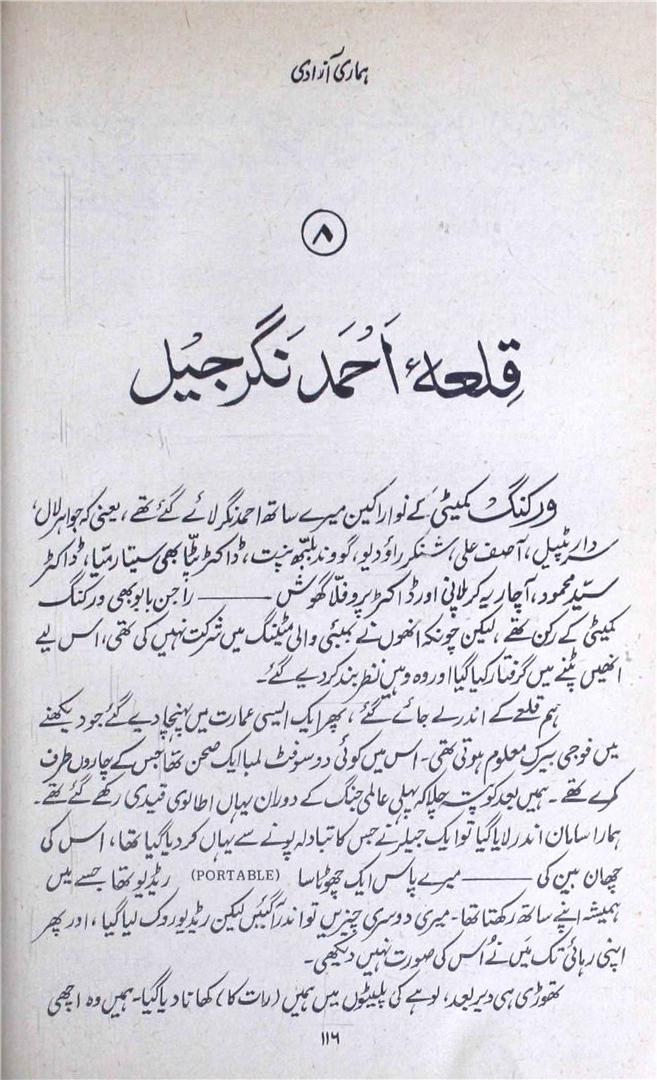 ہماری آزادی
۸
قلعۂ اَحْمَد نَگر جیْل
ورکنگ کمیٹی کے نو اراکین میرے ساتھ احمد نگر لائے گئے تھے، یعنی کہ جواہر لال،
سردار پٹیل، آصف علی، شنکر راؤ دیو، گووند بلبھ پنت، ڈاکٹر پٹّا بھی سیتا رمیّا، ڈاکٹر
سیّد محمود، آچاریہ کرپلانی اور ڈاکٹر پروفلّا گھوش ——— راجن بابو بھی ورکنگ
کمیٹی کے رکن تھے، لیکن چونکہ انھوں نے بمبئی والی میٹنگ میں شرکت نہیں کی تھی، اس لیے
انھیں پٹنے میں گرفتار کیا گیا اور وہ وہیں نظر بند کر دیے گئے۔
ہم قلعے کے اندر لے جائے گئے، پھر ایک ایسی عمارت میں پہنچا دیے گئے جو دیکھنے
میں فوجی بیرک معلوم ہوتی تھی۔ اس میں کوئی دو سو فٹ لمبا ایک صحن تھا جس کے چاروں طرف
کمرے تھے۔ ہمیں بعد کو پتہ چلا کہ پہلی عالمی جنگ کے دوران یہاں اطالوی قیدی رکھے گئے تھے۔
ہمارا سامان اندر لایا گیا تو ایک جیلر نے جس کا تبادلہ پونے سے یہاں کر دیا گیا تھا، اس کی
چھان بین کی ——— میرے پاس ایک چھوٹا سا (PORTABLE) ریڈیو تھا جسے میں
ہمیشہ اپنے ساتھ رکھتا تھا۔ میری دوسری چیزیں تو اندر آگئیں لیکن ریڈیو روک لیا گیا، اور پھر
اپنی رہائی تک میں نے اُس کی صورت نہیں دیکھی۔
تھوڑی ہی دیر بعد، لوہے کی پلیٹوں میں ہمیں (رات کا) کھانا دیا گیا۔ ہمیں وہ اچھی
۱۱۶